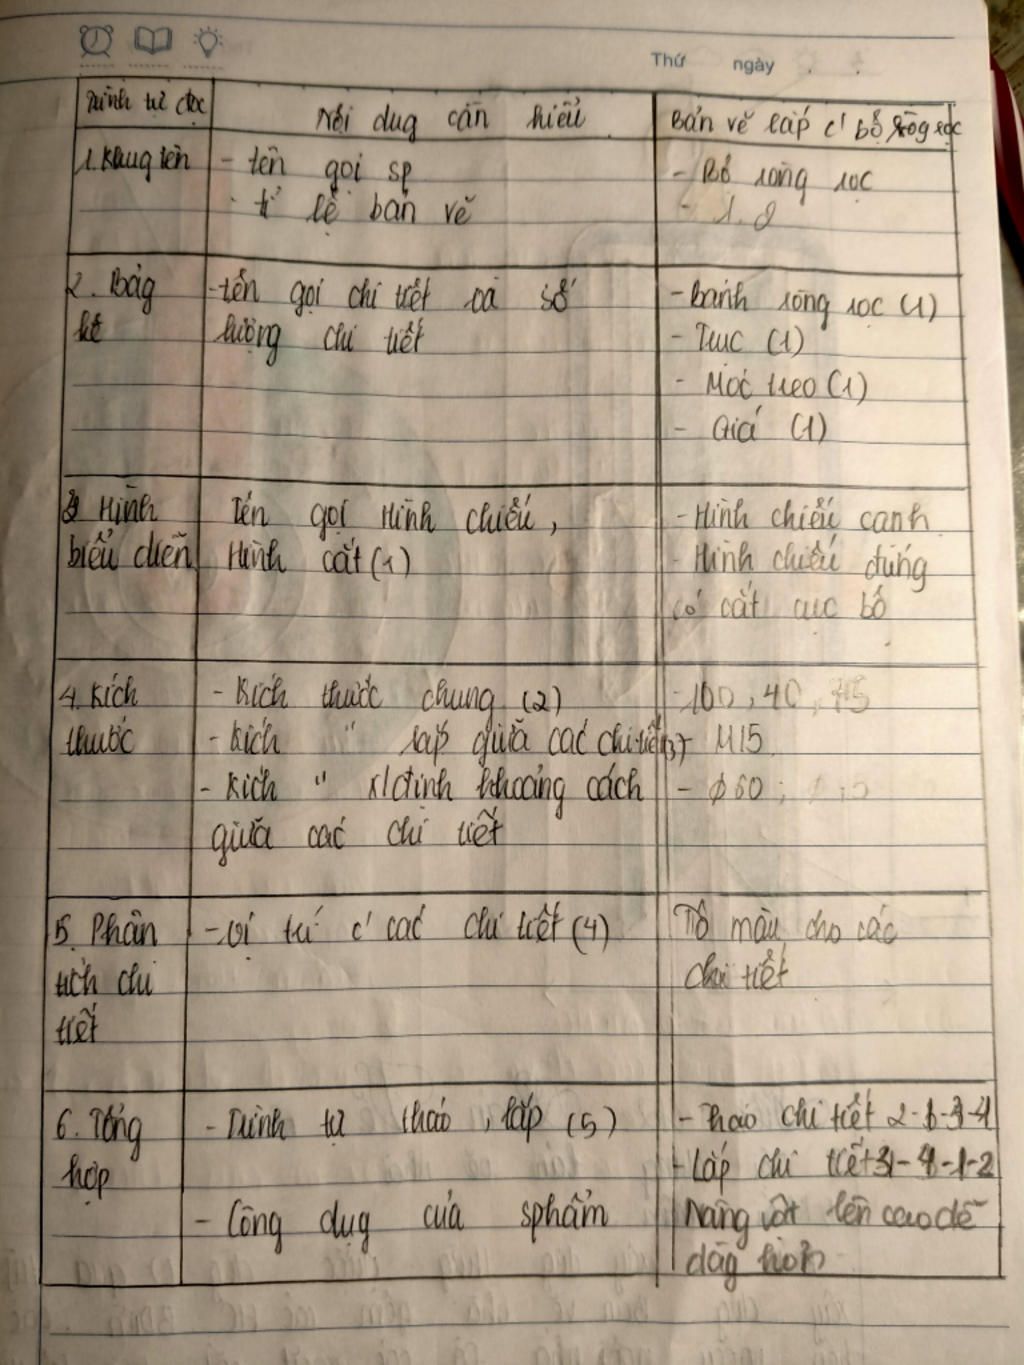 Thứ ngày
Trình tự đọc
Nội dug cần hiểu
Bản vẽ lắp c' bộ ròg rọc
1. Khug tên
- tên gọi sp
- Bộ ròng rọc
- tỉ lệ bản vẽ
2. Bảg
kê
- tên gọi chi tiết và số
lượng chi tiết
- Bánh ròng rọc (1)
- Trục (1)
- Móc treo (1)
- Giá (1)
3 Hình
biểu diễn
Tên gọi Hình chiếu,
Hình cắt (1)
- Hình chiếu cạnh
- Hình chiếu đứng
có cắt cục bộ
4. Kích
thước
- Kích thước chung (2)
- 100, 40, 75
- Kích " lắp giữa các chi tiết (3)
- M15
- Kích " x/định khoảng cách
giữa các chi tiết
- φ60;
5. Phân
tích chi
tiết
- vị trí c' các chi tiết (4)
Tô màu cho các
chi tiết
6. Tổng
hợp
- Trình tự tháo, lắp (5)
- Tháo chi tiết 2-1-3-4
- Lắp chi tiết 3-4-1-2
- Công dụg của sphẩm
Nâng vật lên cao dễ
dàg hơn